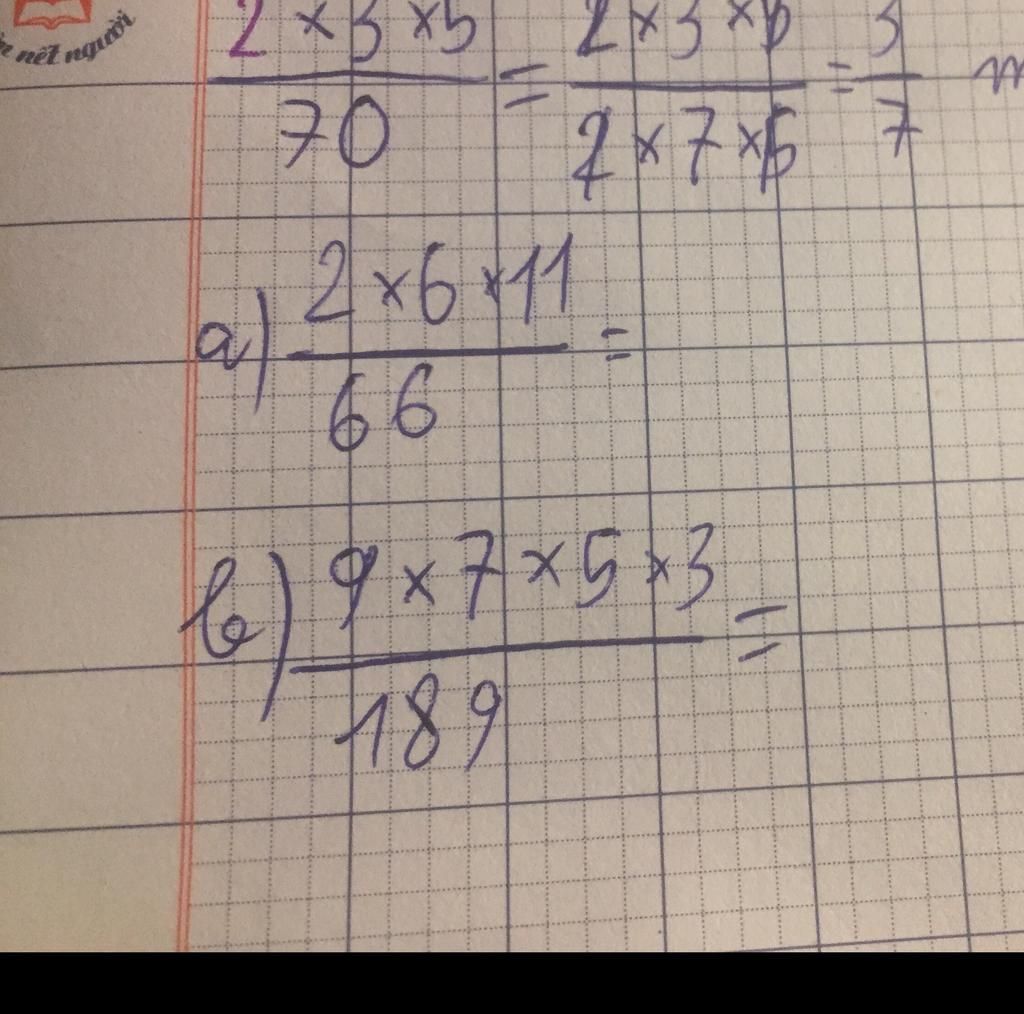 nết người
2 × 3 × 5 / 70 = 2 × 3 × 5 / 2 × 7 × 5 = 3 / 7
a) 2 × 6 × 11 / 66 =
b) 9 × 7 × 5 × 3 / 189 =